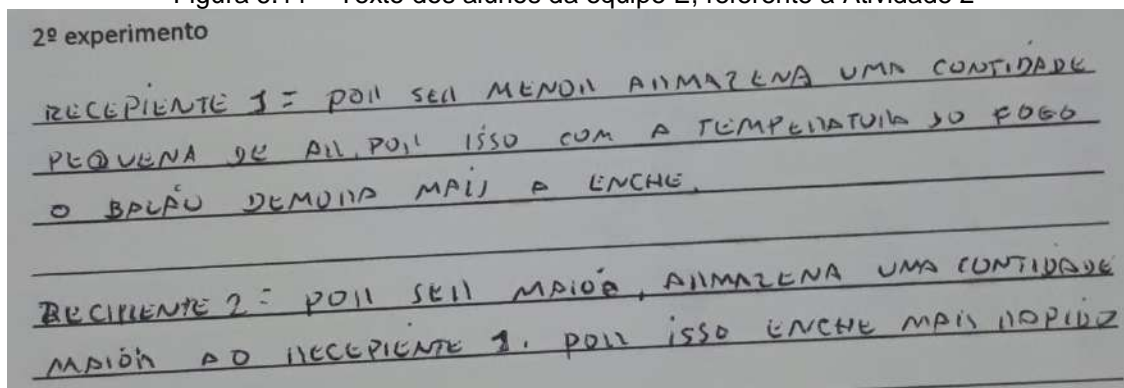 Figura 5.11 – Texto dos alunos da equipe E, referente à Atividade 2
2º experimento
RECEPIENTE 1 = POR SER MENOR ARMAZENA UMA CONTIDADE
PEQUENA DE AR, POR ISSO COM A TEMPERATURA DO FOGO
O BALÃO DEMORA MAIS A ENCHE.
RECIPIENTE 2 = POR SER MAIOR, ARMAZENA UMA CONTIDADE
MAIOR AO RECEPIENTE 1. POR ISSO ENCHE MAIS RAPIDO